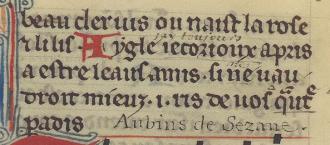 beau cler vis ou naist la rose
⁊ li lis. Aygle ie cor ioux apris
jay toujours
a estre leaus amis. si ne uau
droit mieuz .i. ris de vos quatre
padis Aubins de Sézane.